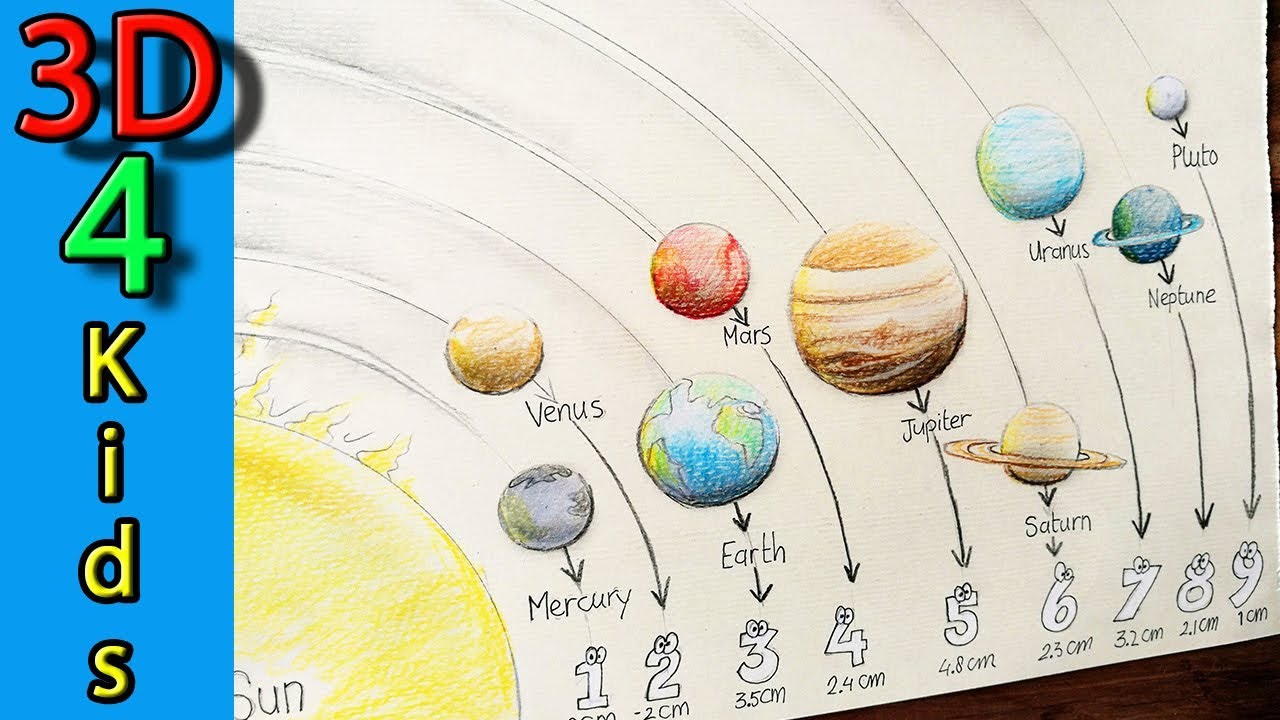 3D
4
K
i
d
s
Pluto
Uranus
Neptune
Mars
Venus
Jupiter
Saturn
Earth
Mercury
Sun
1
2
3
4
5
6
7
8
9
-2cm
3.5cm
2.4cm
4.8cm
2.3cm
3.2cm
2.1cm
1cm